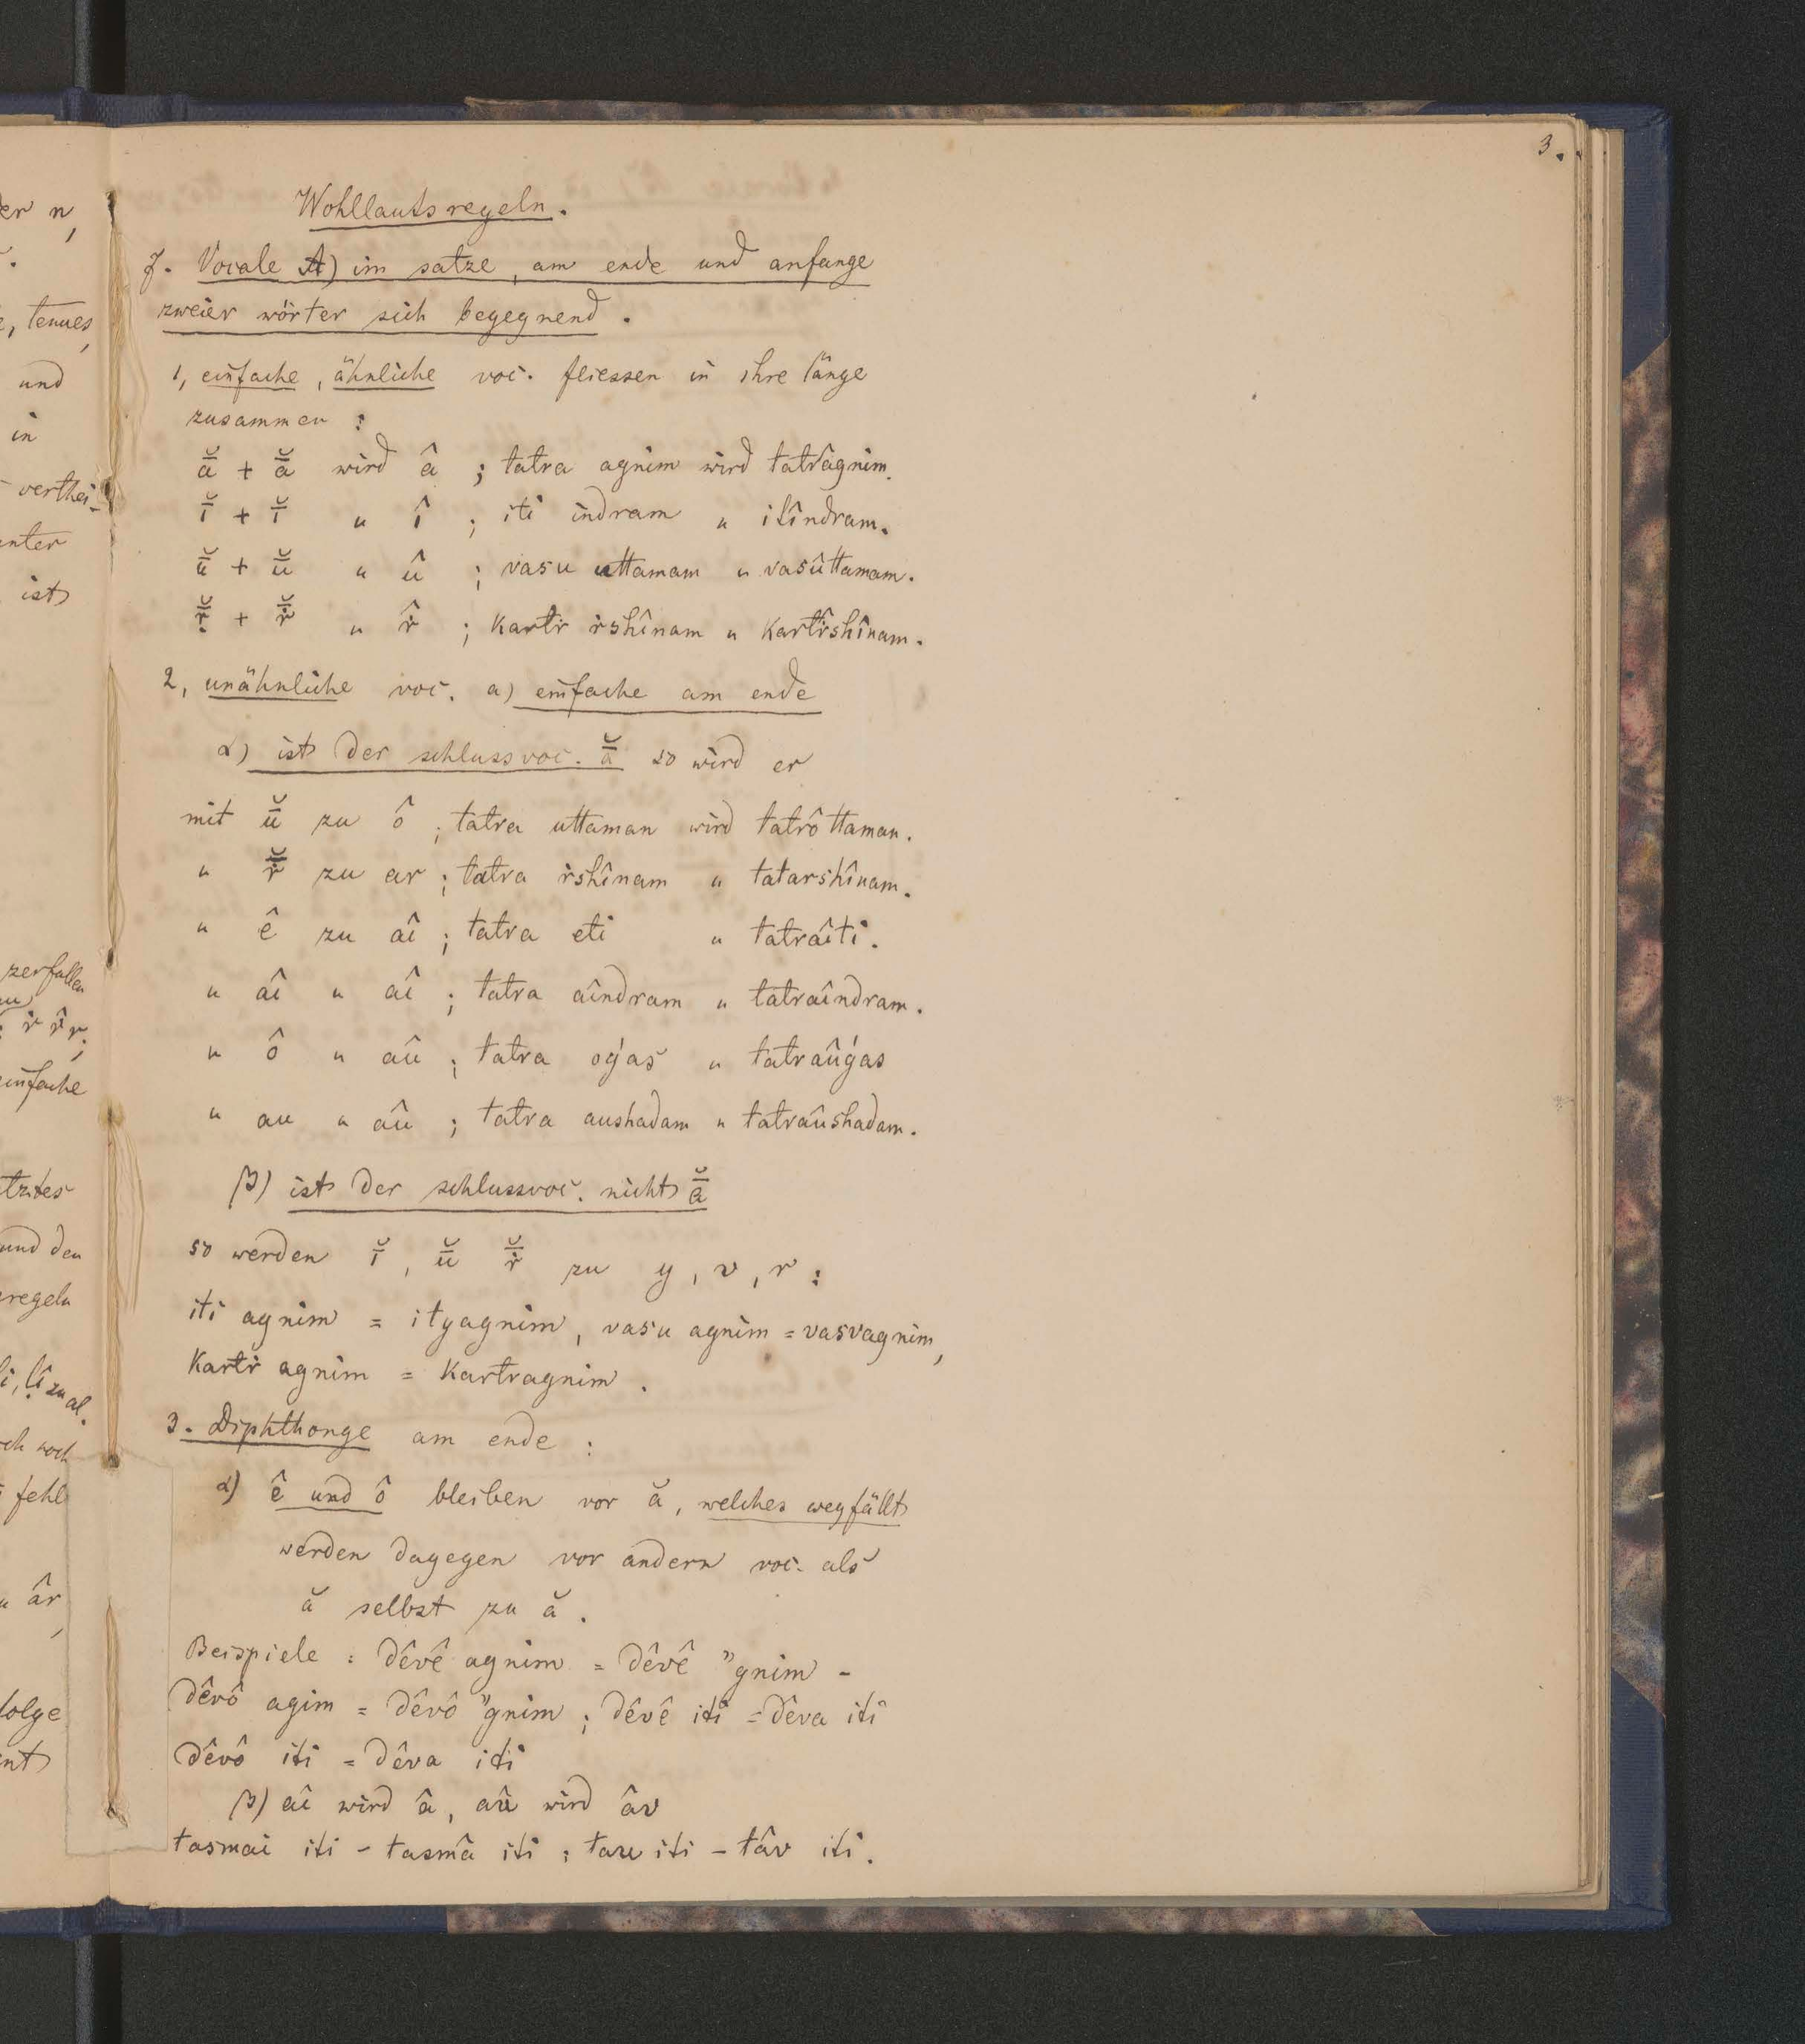 3.
Wohllautsregeln.
I. Vocale A) im satze, am ende und anfange
zweier wörter sich begegnend.
1, einfache, ähnliche voc. fliessen in ihre länge
zusammen:
ā̆ + ā̆ wird â ; tatra agnim wird tatrâgnim.
ī̆ + ī̆ " î ; iti indram " itîndram.
ū̆ + ū̆ " û ; vasu uttamam " vasûttamam.
ṙ̄̆ + ṙ̄̆ " ṙ̂ ; kartṙ ṙshînam " kartṙ̂shînam.
2, unähnliche voc. a) einfache am ende
α) ist der schlussvoc. ā̆ so wird er
mit ū̆ zu ô ; tatra uttaman wird tatrôttaman.
" ṙ̄̆ zu ar ; tatra ṙshînam " tatarshînam.
" ê zu aî ; tatra eti " tatraîti.
" aî " aî ; tatra aîndram " tatraîndram.
" ô " aû ; tatra oǵas " tatraûǵas
" au " aû ; tatra aushadam " tatraûshadam.
β) ist der schlussvoc. nicht ā̆
so werden ī̆, ū̆ ṙ̄̆ zu y, v, r :
iti agnim = ityagnim, vasu agnim = vasvagnim,
kartṙ agnim = kartragnim.
3. Diphthonge am ende :
α) ê und ô bleiben vor ă, welches wegfällt
werden dagegen vor andern voc. als
ă selbst zu ă.
Beispiele : dêvê agnim = dêvê "gnim -
dêvô agim = dêvô "gnim ; dêvê iti = dêva iti
dêvô iti = dêva iti
β) aî wird â, aû wird âv
tasmai iti - tasmâ iti ; tau iti - tâv iti.
er n,
, tenues,
und
in
verthei-
ist
zerfallen
einfache
und den
regeln
zu al.
fehl
âr,
folge